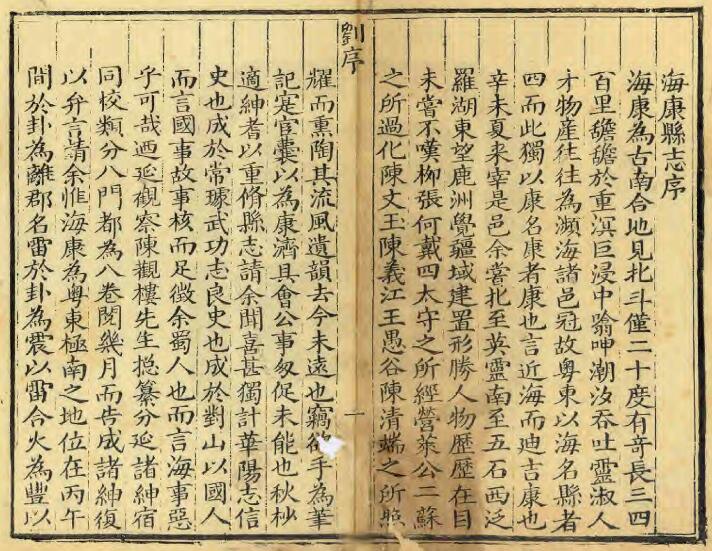 海康縣志序
海康為古南合地見北斗僅二十度有奇長三四
百里於重溟巨浸中翕呷潮汐吞吐靈淑人
才物產往往為瀕海諸邑冠故粵東以海名縣者
四而此獨以康名康者康也言近海而迪吉康也
辛未夏来宰是邑余嘗北至英靈南至五石西泛
羅湖東望鹿洲覺疆域建置形勝人物歷歷在目
未嘗不嘆柳張何戴四太守之所經營萊公二蘇
之所過化陳文玉陳義江王愚谷陳清端之所照
劉序
一
耀而熏陶其流風遺韻去今未遠也竊欲手為筆
記寔宦囊以為康濟具會公事匆促未能也秋杪
適紳耆以重脩縣志請余聞喜甚獨計華陽志信
史也成於常璩武功志良史也成於對山以國人
而言國事故事核而足徵余蜀人也而言海事惡
乎可哉廼延觀察陳觀樓先生摠纂分延諸紳宿
同校類分八門都為八卷閱幾月而告成諸紳復
以弁言請余惟海康為粵東極南之地位在丙午
間於卦為離郡名雷於卦為震以雷合火為豐以